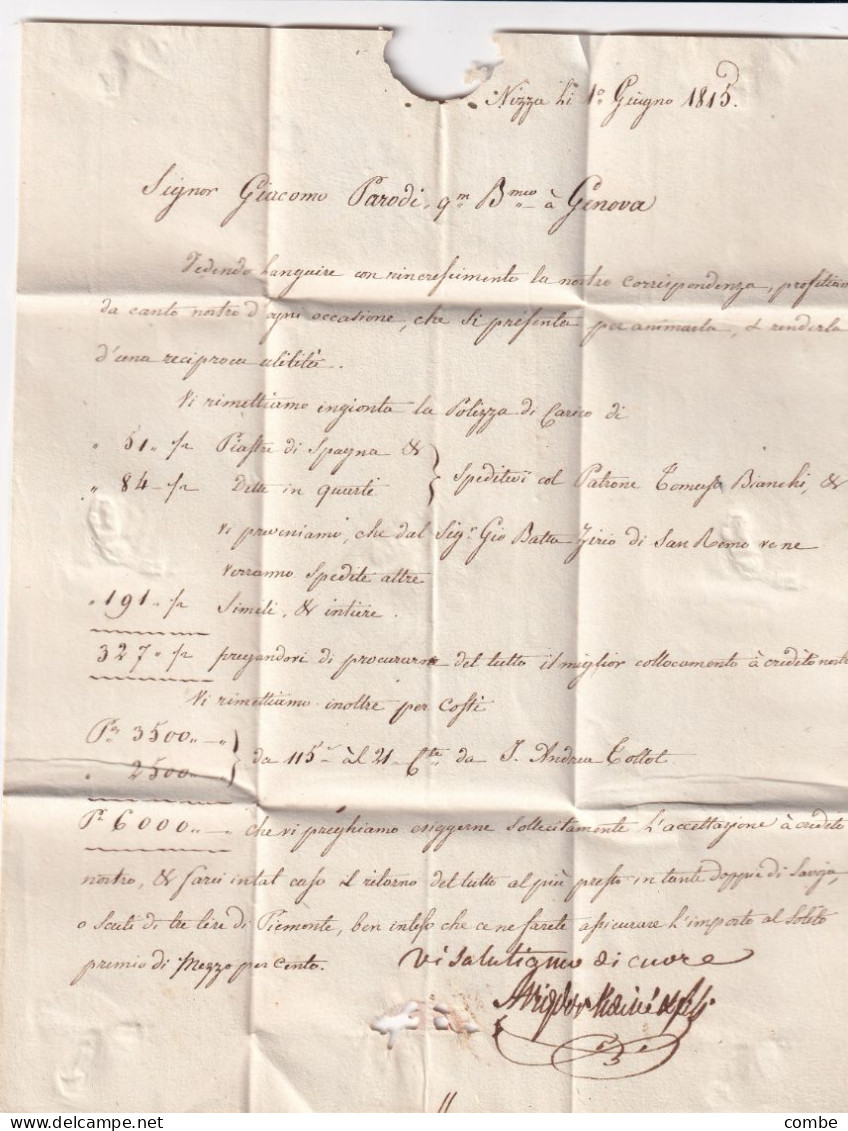 Nizza li 1º Giugno 1815.
Signor Giacomo Parodi, qm Bmeo à Genova
Vedendo languire con rincrescimento la nostra corrispondenza, profitiamo
da canto nostro d'ogni occasione, che si presenta per animarla, & renderla
d'una reciproca utilità.
Vi rimettiamo ingionta la Polizza di Carico di
" 51 " /m Piastre di Spagna &
" 84 - /m Dette in quarti } speditevi col Patrone Tomaso Bianchi, &
vi preveniamo, che dal Sigr Gio Batta Zirio di San Remo ve ne
verranno spedite altre
" 191 " /m Simili, & intiere.
327 " /m pregandovi di procurarne del tutto il miglior collocamento à credito nostro
Vi rimettiamo inoltre per Costì
Pr 3500 " - "
" 2500 } da 115 àl 21 Cte da J. Andrea Tollot
Pr 6000 " - " che vi preghiamo esiggerne sollecitamente l'accettazione à credito
nostro, & farci in tal caso il ritorno del tutto al più presto in tante doppie di Savoja,
o Scuti di tre lire di Piemonte, ben inteso che ce ne farete assicurare l'importo al solito
premio di Mezzo per Cento. Vi salutiamo di cuore
combe